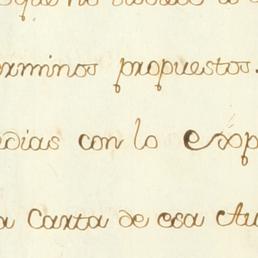 que no
erminos propuestos.
edias con lo exp
a Carta de esa Au